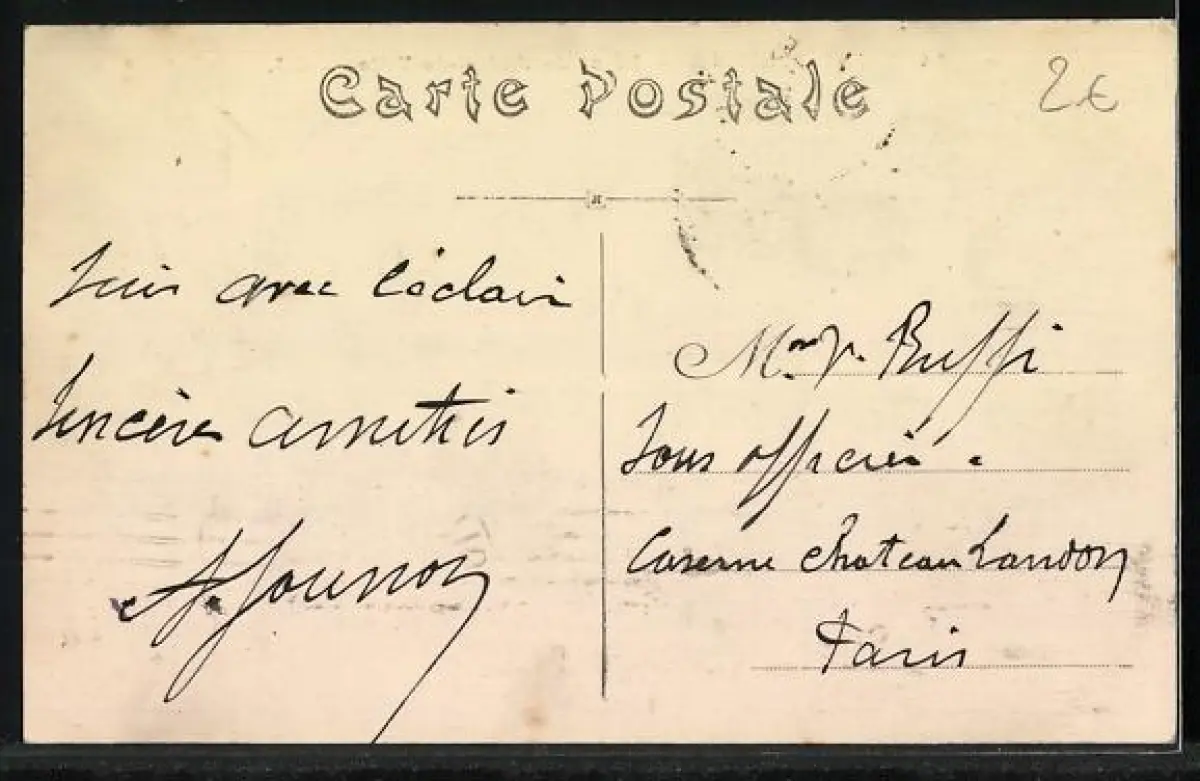 Carte Postale
2€
Suis avec l'éclair
Sincères amitiés
Mr Ruffi
Sous officier.
Caserne Chateau Landon
Paris